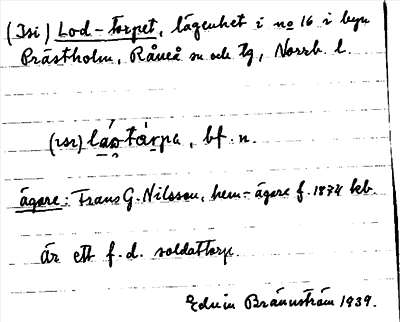 (Isi) Lod-torpet, lägenhet i no 16 i byn
Prästholm, Råneå sn och tg, Norrb. l.
(isi) láo̭tárpa, bf. n.
ägare: Frans G. Nilsson, hem-ägare f. 1874 kb.
Är ett f.d. soldattorp.
Edvin Brännström 1939.